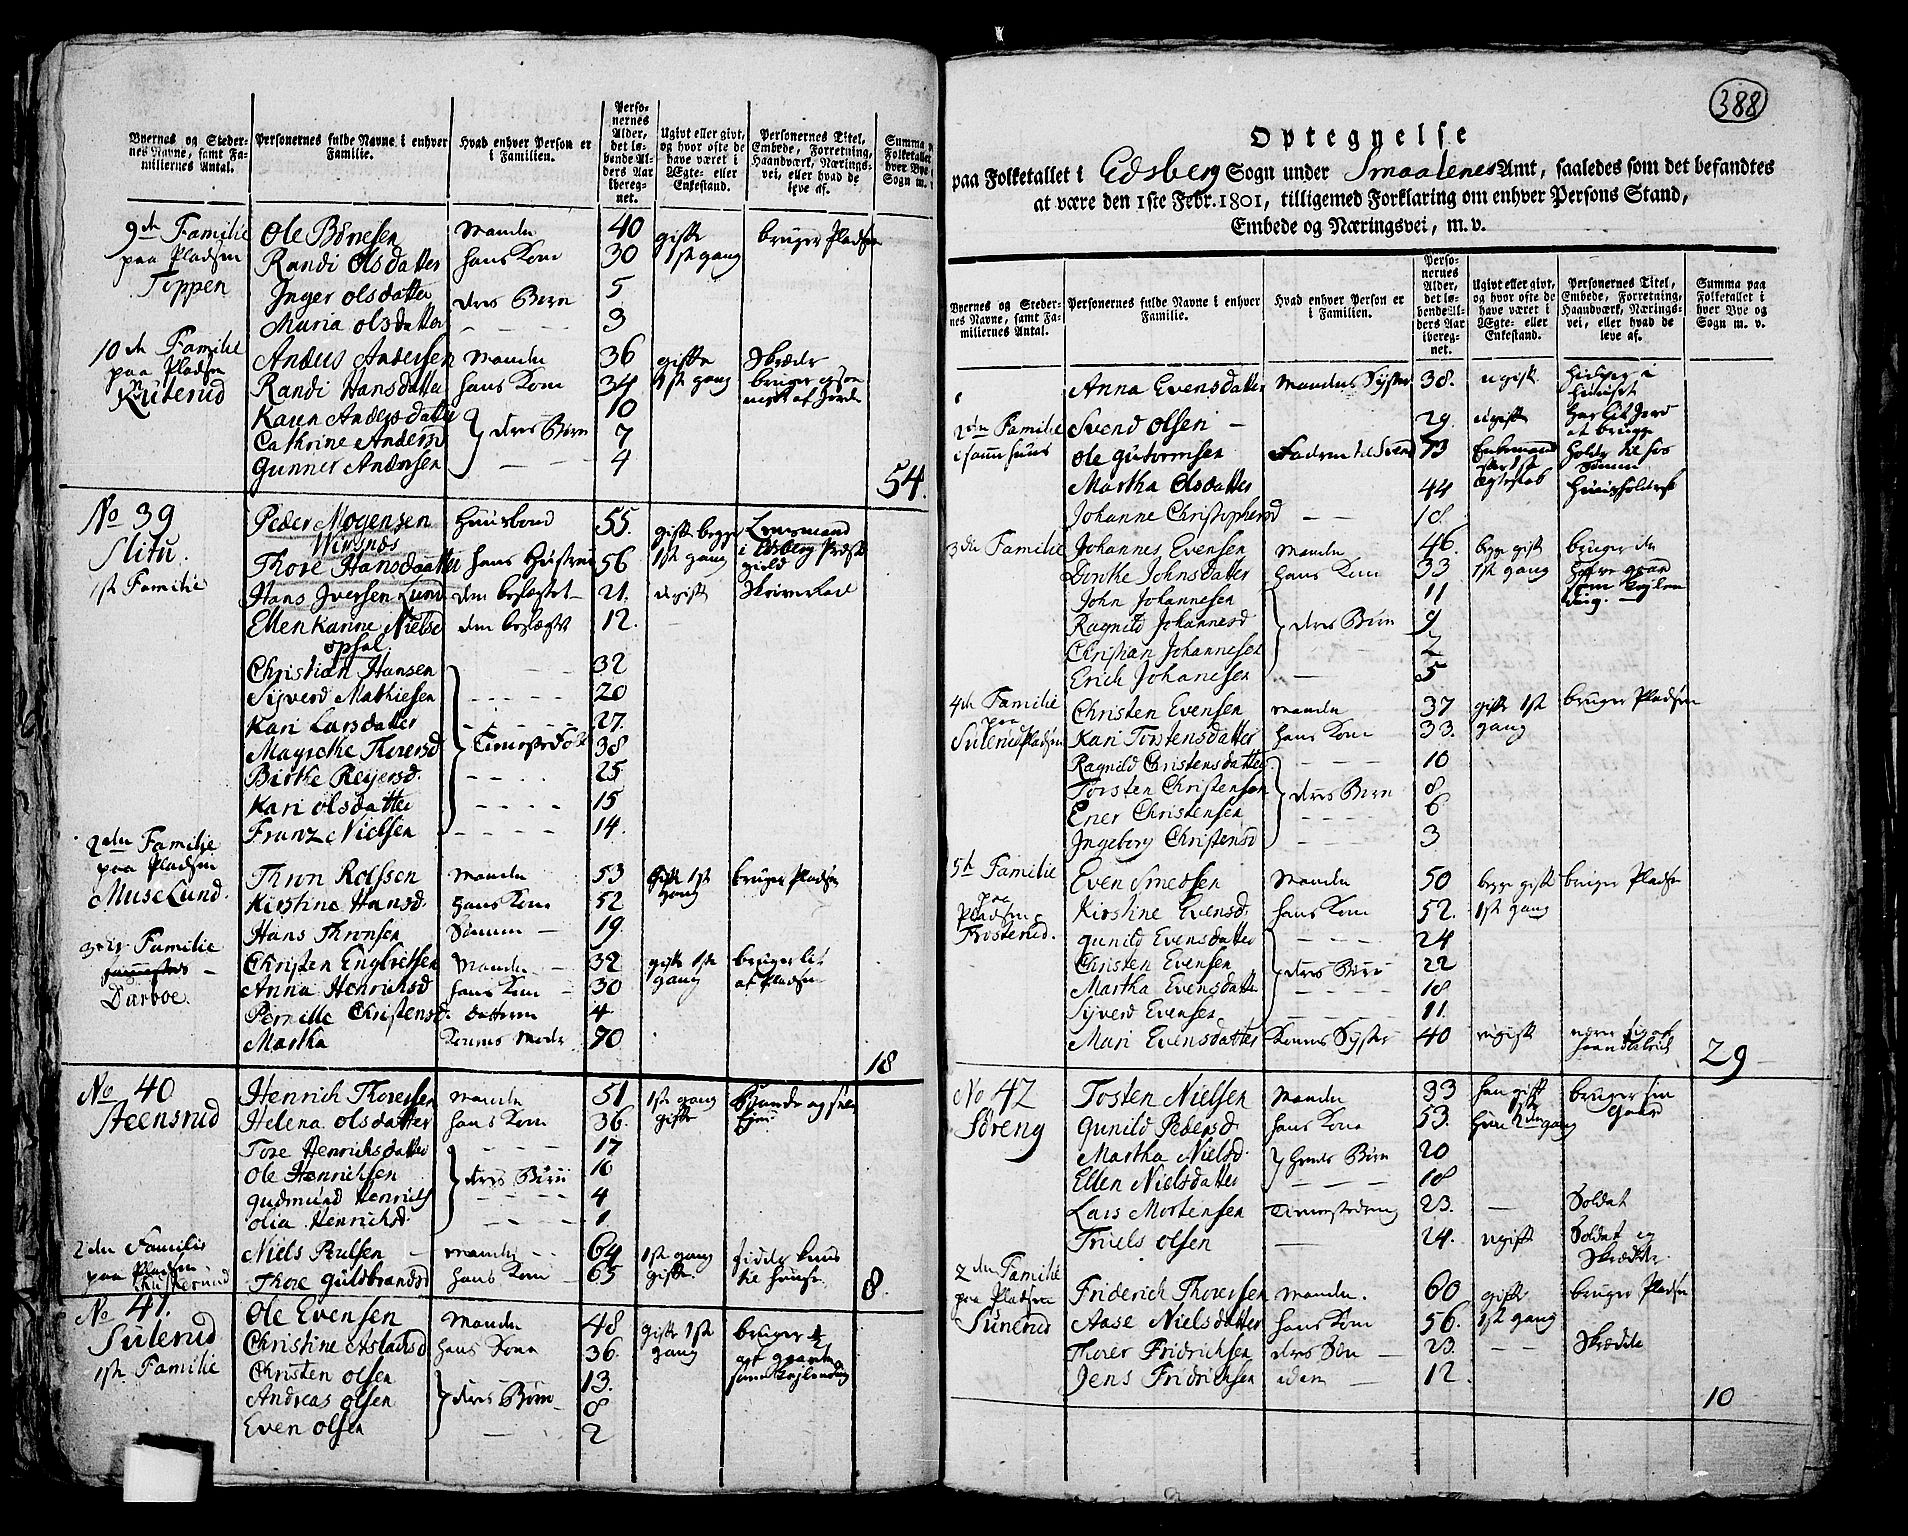 Byernes og Steder-
nes Navne, samt Fa-
miliernes Antal.
Personernes fulde Navne i enhver
Familie.
Hvad enhver Person er
i Familien.
Perso-
nernes
Alder,
det lø-
bende Al-
ders Aar
ibereg-
net.
Ugivt eller givt,
og hvor ofte de
have været i
Ægte- eller
Enkestand.
Personernes Titel,
Embede, Forretning,
Haandværk, Nærings-
vei, eller hvad de
leve af.
Summa
Folketallet
hver Bye
Sogn m.
9de Familie Ole Børresen Manden 40 gifte bruger Pladsen
paa Pladsen Randi Olsdatter hans Kone 30 1ste gang
Toppen Inger Olsdatter deres Børn 5
Maria Olsdatter 3
10de Familie Anders Andersen Manden 36 gifte Skræder
paa Pladsen Randi Hansdatter hans Kone 34 1ste gang bruger
Kniterud Karen Andersdatter 10
Cathrine Andersd deres Børn 7
Gunner Andersen 4
54.
No 39 Peder Mogensen Huusbond 55. gifte begge Lensmand
Slitu. Wirsnæs
Thore Hansdaatter hans Hustrue 56 1ste gang i Edsberg Præste
gield
1ste Familie Hans Iversen Lund dem beslægtet 21. ugift Skriverkarl
Ellen Karine Nielsd dem beslægtet 12.
Opsal.
Christian Hansen 32
Syverd Mathiesen 20
Kari Larsdatter 27.
Magrethe Thoresd Tienestefolk 38
Birthe Reiersd. 25
Kari Olsdatter 15
Franz Nielsen 14.
2den Familie
paa Pladsen Thron Rolfsen Manden 53 gifte 1ste bruger Pladsen
Muse Lund. Kirstine Hansd. hans Kone 52 gang
Hans Thronsen Sønnen 19.
3die Familie Christen Engbretsen Manden 32 gifte 1ste bruger lit
Anna Henrichsd hans Kone 30 gang af Pladsen
Darboe. Pernille Christensd. datteren 4
Martha Konens Moder 70
18
No 40 Henrich Thoresen Manden 51 1ste gang Bonde og
Steensrud Helena Olsdatter hans Kone 36. gifte
Tore Henrichsdatter 17
Ole Henrichsen deres Børn 10
Gudmund Henrichs 4
Olia Henrichsd. 1.
2den Familie Niels Poulsen Manden 64 1ste gang
paa Pladsen Thore Guldbrandsd hans Kone 65 gifte. til huuse. 8.
No 41. Ole Evensen Manden 48 gifte 1ste bruger ½
Sulerud Christine Aslacksd hans Kone 36. gang
1ste Familie Christen Olsen 13.
Andreas Olsen deres Børn 8
Even Olsen 2
388
Optegnelse
paa Folketallet i Edsberg Sogn under Smaalenes Amt, saaledes som det befandtes
at være den 1ste Febr. 1801, tilligemed Forklaring om enhver Persons Stand,
Embede og Næringsvei, m. v.
Byernes og Steder-
nes Navne, samt Fa-
miliernes Antal.
Personernes fulde Navne i enhver
Familie.
Hvad enhver Person er
i Familien.
Perso-
nernes
Alder,
det lø-
bende Al-
ders Aar
ibereg-
net.
Ugivt eller givt,
og hvor ofte de
have været i
Ægte- eller
Enkestand.
Personernes Titel,
Embede, Forretning,
Haandværk, Nærings-
vei, eller hvad de
leve af.
Summa paa
Folketallet i
hver Bye og
Sogn m. v.
Anna Evensdatter Mandens Syster 38. ugift i
Huuset
2den Familie Svend Olsen 29. ugift har lit Jord
at bruge
i samme huus Ole Gutormsen Faderen til Svend 73 Enkemand
Sønnen
Martha Olsdatter 44 Ægteskab Huusholderske
Johanne Christophersd 18.
3die Familie Johannes Evensen Manden 46. begge gift bruger den
Dorthe Johnsdatter hans Kone 33 1ste gang
John Johannesen 11
Ragnild Johannesd deres Børn 9
Christian Johannesen 2
Erich Johannesen 5
4de Familie Christen Evensen Manden 37 gifte 1ste bruger Pladsen
paa
Sulerud Pladsen Kari Torstensdatter hans Kone 33. gang
Ragnild Christensdatter 10
Torsten Christensen deres Børn 8
Ener Christensen 6
Ingeborg Christensd 3
5te Familie Even Smedsen Manden 50 begge gift bruger Pladsen
paa
Pladsen Kirstine Evensd. hans Kone 52. 1ste gang
Frosterud. Gunild Evensdatter 24
Christen Evensen deres Børn 22
Martha Evensdatter 18
Syverd Evensen 11.
Mari Evensdatter Konens Syster 40 ugift nærer sig af
haandarbeid 29
No 42 Tosten Nielsen Manden 33 han gift bruger sin
1ste Gaard
Søreng Gunild Pedersd. hans Kone 53. hun 2den gang
Martha Nielsd. hendes Børn 20
Ellen Nielsdatter 18
Lars Mortensen Tienestedreng 23. Soldat
Friels Olsen 24. ugift Soldat og
Skrædder
2den Familie Friderich Thoresen Manden. 60 gifte bruger Pladsen
paa Pladsen
Sunerud Aase Nielsdatter hans Kone 56. 1ste gang
Thorer Fridrichsen deres Søn 23. Skrædder
Jens Fridrichsen idem 12.
10